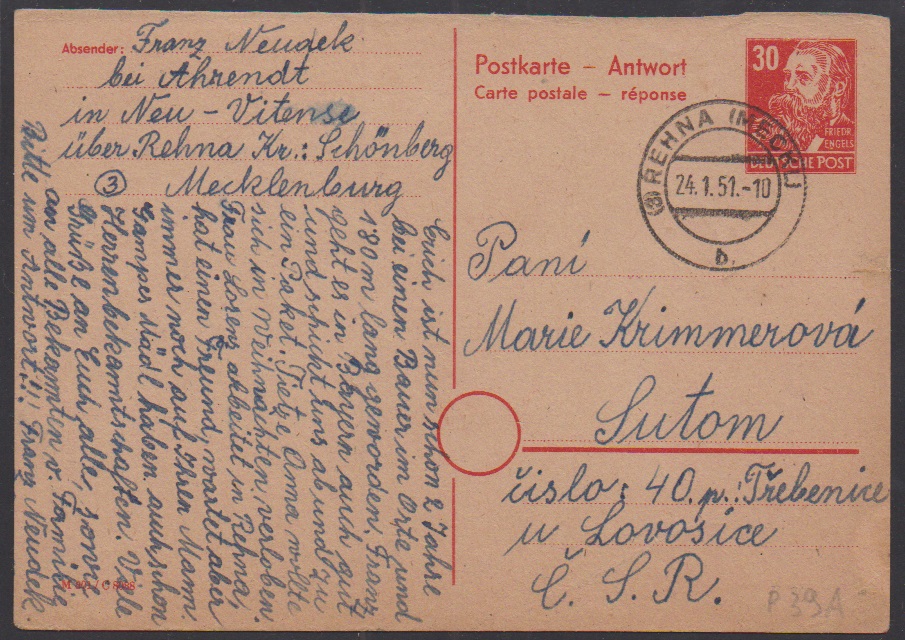 Absender: Franz Neudek
bei Ahrendt
in Neu - Vitense
über Rehna Kr.: Schönberg
③ Mecklenburg
Erich ist nun schon 2 Jahre
bei einen Bauer im Orte und
180 m lang geworden. Franz
geht es in Bayern auch gut
und schickt uns ab und zu
ein Paket. Tietze Anna wollte
sich in Weihnachten verloben.
Frau Lorenz arbeitet in Rehna,
hat einen Freund, wartet aber
immer noch auf Ihren Mann.
Gamper Mädl haben auch schon
Herrenbekantschaften. Viele
Grüße an Euch alle, sonst
an alle Bekannten v. Familie
Bitte um Antwort!!! Franz Neudek.
Postkarte – Antwort
Carte postale – réponse
30
FRIEDR.
ENGELS
DEUTSCHE POST
REHNA (MECKL)
24.1.51.-10
b
Paní
Marie Krimmerová
Sutom
číslo: 40. p.: Třebenice
u Lovosice
Č. S. R.
P 39A